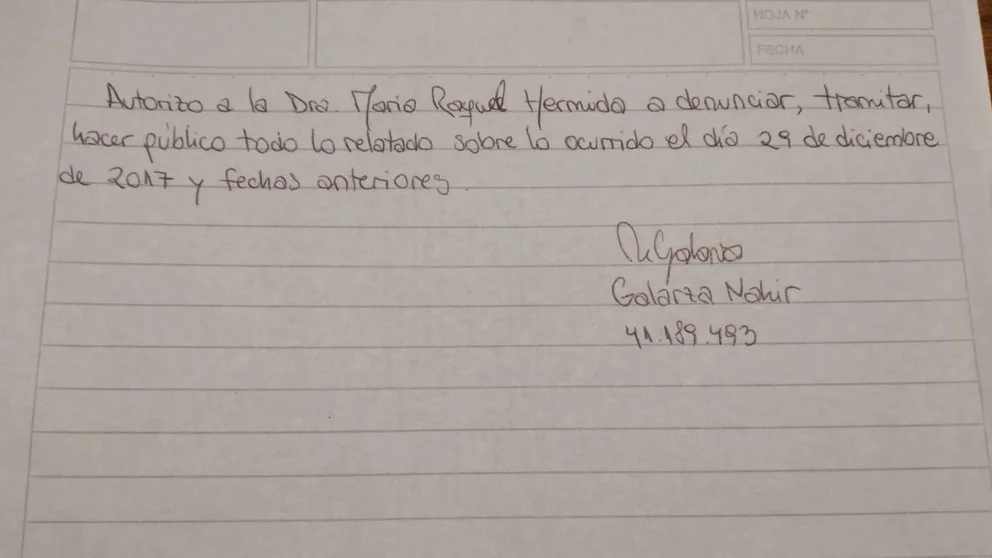 HOJA Nº
FECHA
Autorizo a la Dra. María Raquel Hermida a denunciar, tramitar,
hacer público todo lo relatado sobre lo ocurrido el día 29 de diciembre
de 2017 y fechas anteriores.
Galarza Nahir
41.189.493